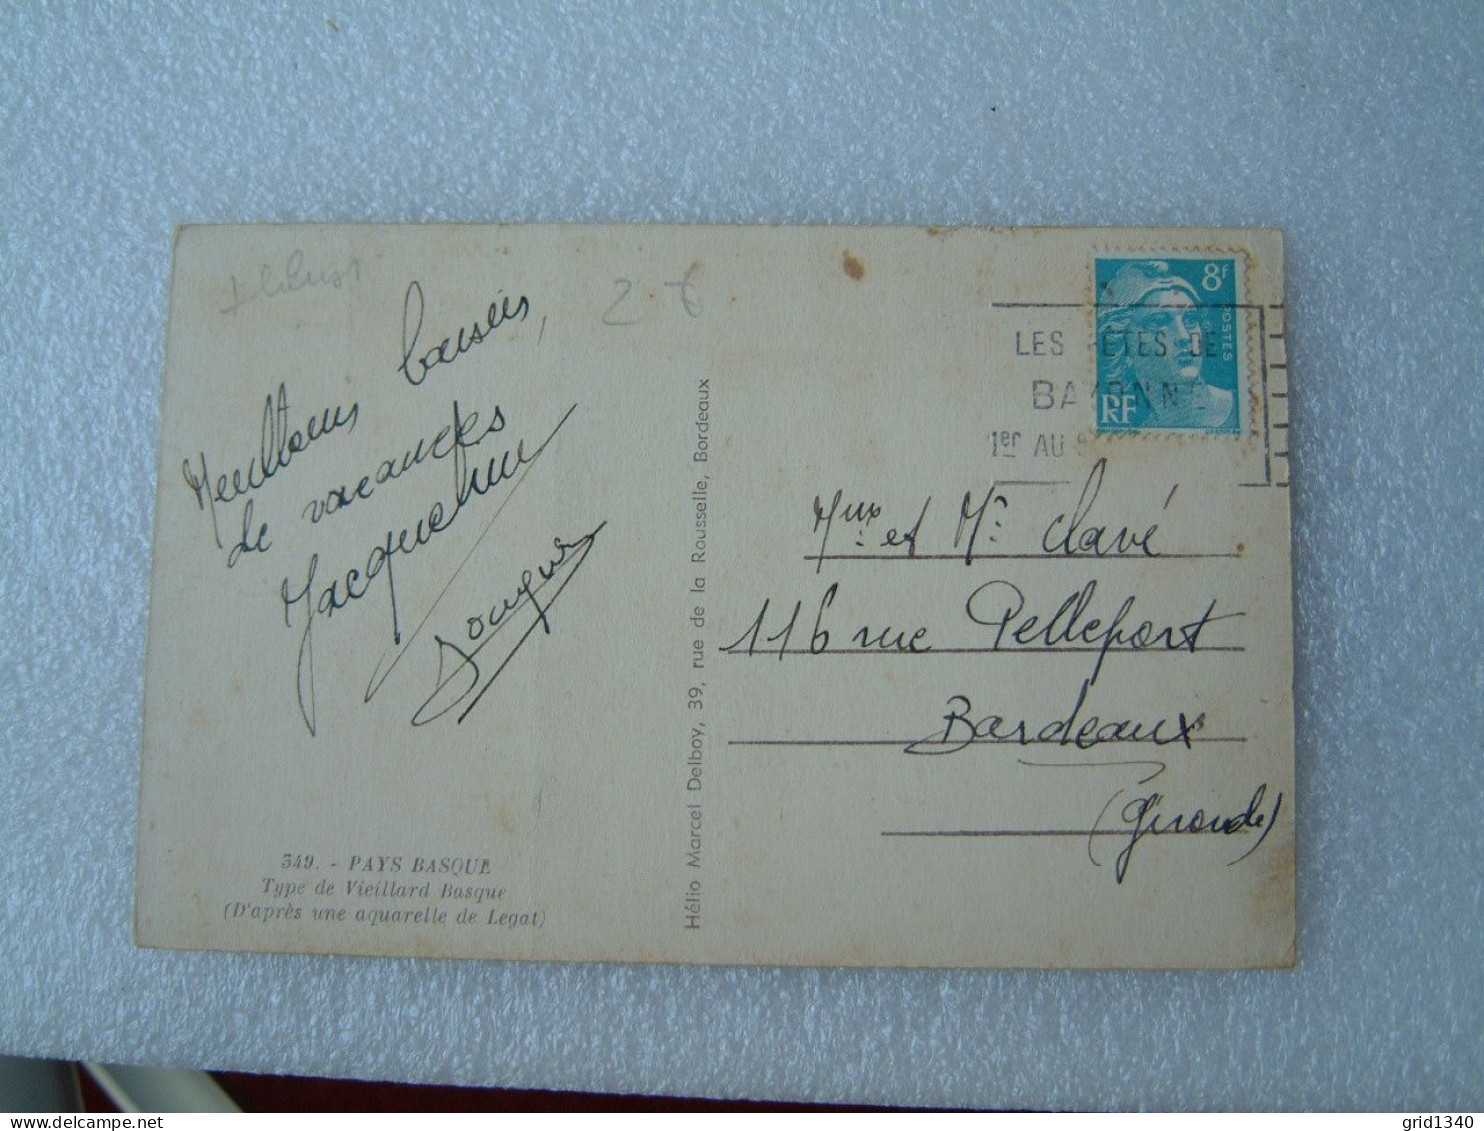 2 €
Meilleurs baisers
de vacances
Jacqueline
349. - PAYS BASQUE
Type de Vieillard Basque
(D'après une aquarelle de Legat)
Hélio Marcel Delboy, 39, rue de la Rousselle, Bordeaux
8f
POSTES
RF
LES FÊTES DE
BAYONNE
1er AU
Mux et Mr Clavé
116 rue Pelleport
Bordeaux
(Gironde)
grid1340